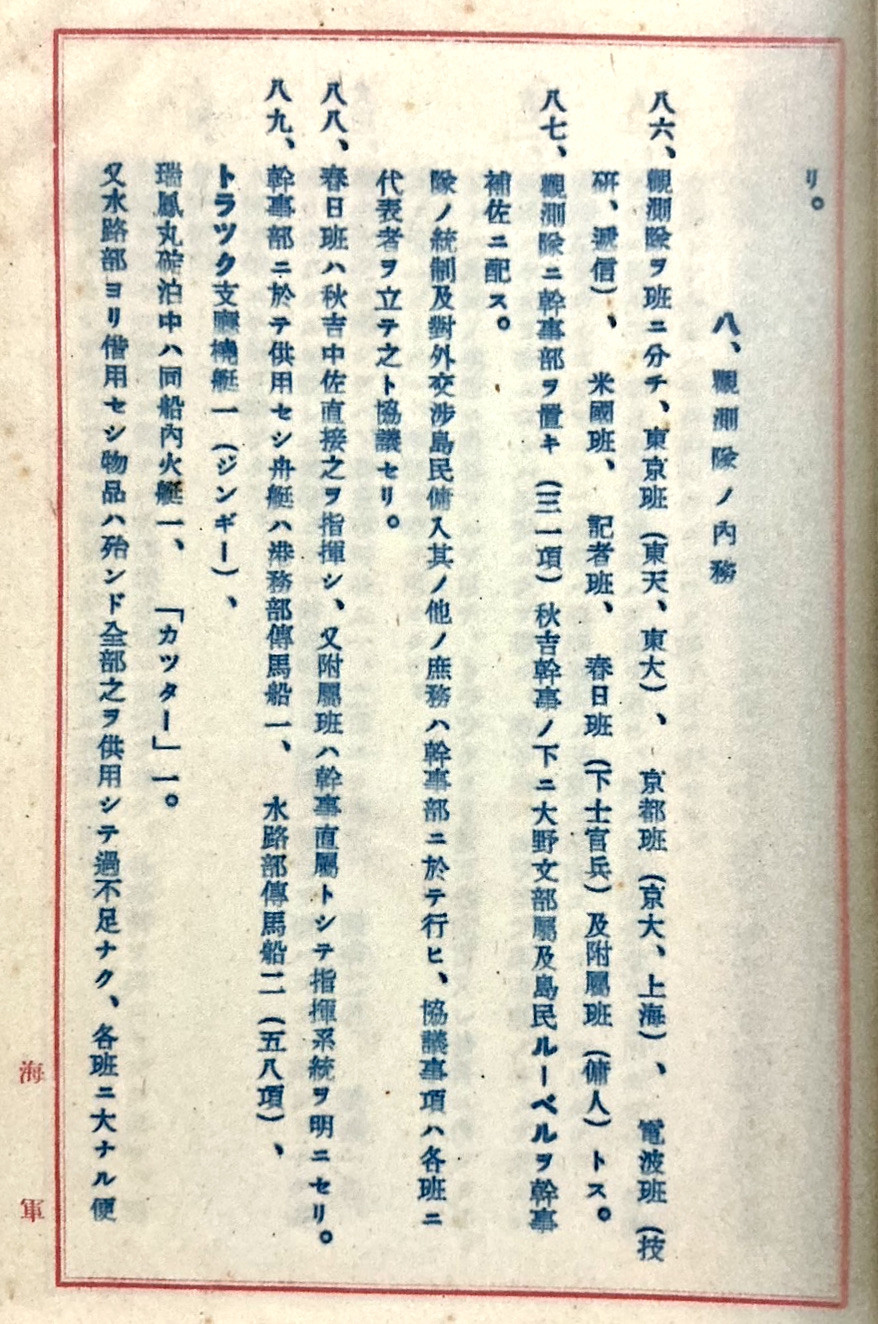 リ。
八、觀測隊ノ內務
八六、觀測隊ヲ班ニ分チ、東京班（東天、東大）、京都班（京大、上海）、電波班（技
硏、遞信）、米國班、記者班、春日班（下士官兵）及附屬班（傭人）トス。
八七、觀測隊ニ幹事部ヲ置キ（三一項）秋吉幹事ノ下ニ大野文部屬及島民ルーペルヲ幹事
補佐ニ配ス。
隊ノ統制及對外交涉島民傭入其ノ他ノ庶務ハ幹事部ニ於テ行ヒ、協議事項ハ各班ニ
代表者ヲ立テ之ト協議セリ。
八八、春日班ハ秋吉中佐直接之ヲ指揮シ、又附屬班ハ幹事直屬トシテ指揮系統ヲ明ニセリ。
八九、幹事部ニ於テ供用セシ舟艇ハ港務部傳馬船一、水路部傳馬船二（五八項）、
トラツク支廳橈艇一（ジンギー）、
瑞鳳丸碇泊中ハ同船內火艇一、「カツター」一。
又水路部ヨリ借用セシ物品ハ殆ンド全部之ヲ供用シテ過不足ナク、各班ニ大ナル便
海軍